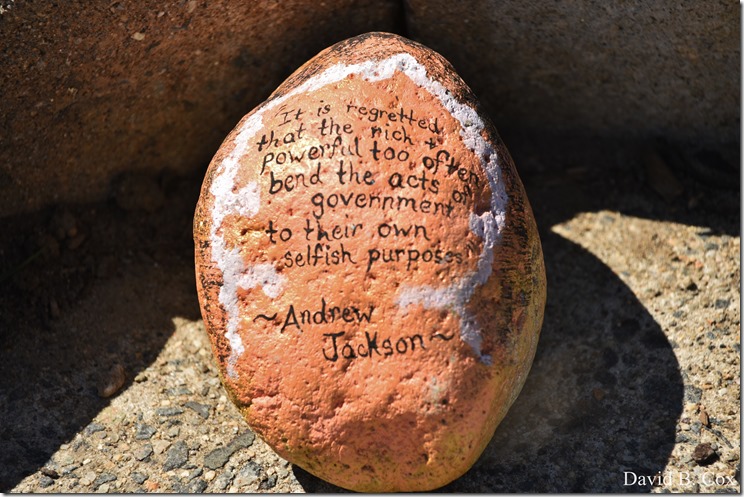 "It is regretted
that the rich +
powerful too often
bend the acts of
government
to their own
selfish purposes"
~Andrew
Jackson~
David B. Cox